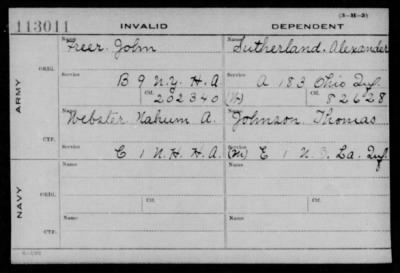 (3-H-3)
113011 INVALID DEPENDENT
Name Name
Freer, John Sutherland, Alexander
ORIG. Service Service
B 9 N.Y. H.A A 183 Ohio Inf
Ctf. Ctf.
202340 (W) 82628
ARMY
Name Name
Webster Nahum A. Johnson, Thomas
CTF. Service Service
C 1 N.H. H.A. (M) E 1 N.G. La. Inf
Name Name
NAVY
ORIG. Service Ctf. Service Ctf.
Name Name
CTF. Service Service